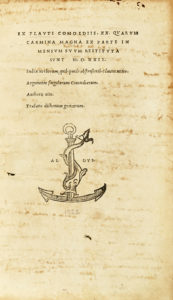 EX PLAVTI COMOEDIIS. XX. QVARVM
CARMINA MAGNA EX PARTE IN
MENSVM SVVM RESTITVTA
SVNT M. D. XXII.
Index uerborum, quibus paulo abstrusioribus Plautus utitur.
Argumenta singularum Comoediarum.
Authoris uita.
Tralatio dictionum graecarum.
AL DVS